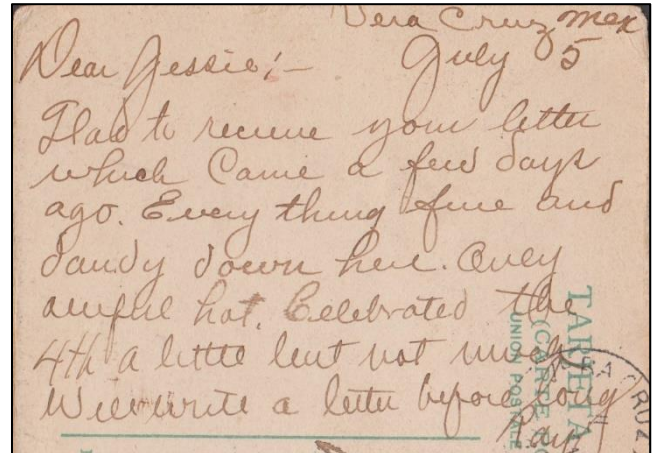 Vera Cruz Mex
July 5
Dear Jessie:-
Glad to receive your letter
which Came a few days
ago. Every thing fine and
dandy down here. Only
awful hot. Celebrated the
4th a little but not much
Will write a letter before long
Ray
TARJETA
(CARTE
UNION POSTALE
RA CRUZ